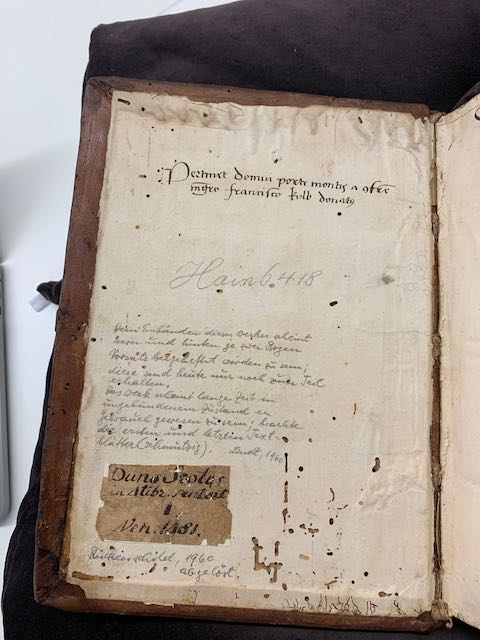 Pertinet domui porte montis a
francisco kolb
Hain 6418
Beim Einbinden dieses Werkes scheint
vorn und hinten je zwei Bogen
Vorsatz worden zu sein;
diese sind heute nur noch zum Teil
erhalten.
Das Werk scheint lange Zeit in
ungebundenem Zustand in
Gebrauch gewesen zu sein; beachte
die ersten und letzten Text-
blätter (schmutzig). 1960
Duns Scotus
Ven. 1481.
Rückenschild, 1960
abgelöst